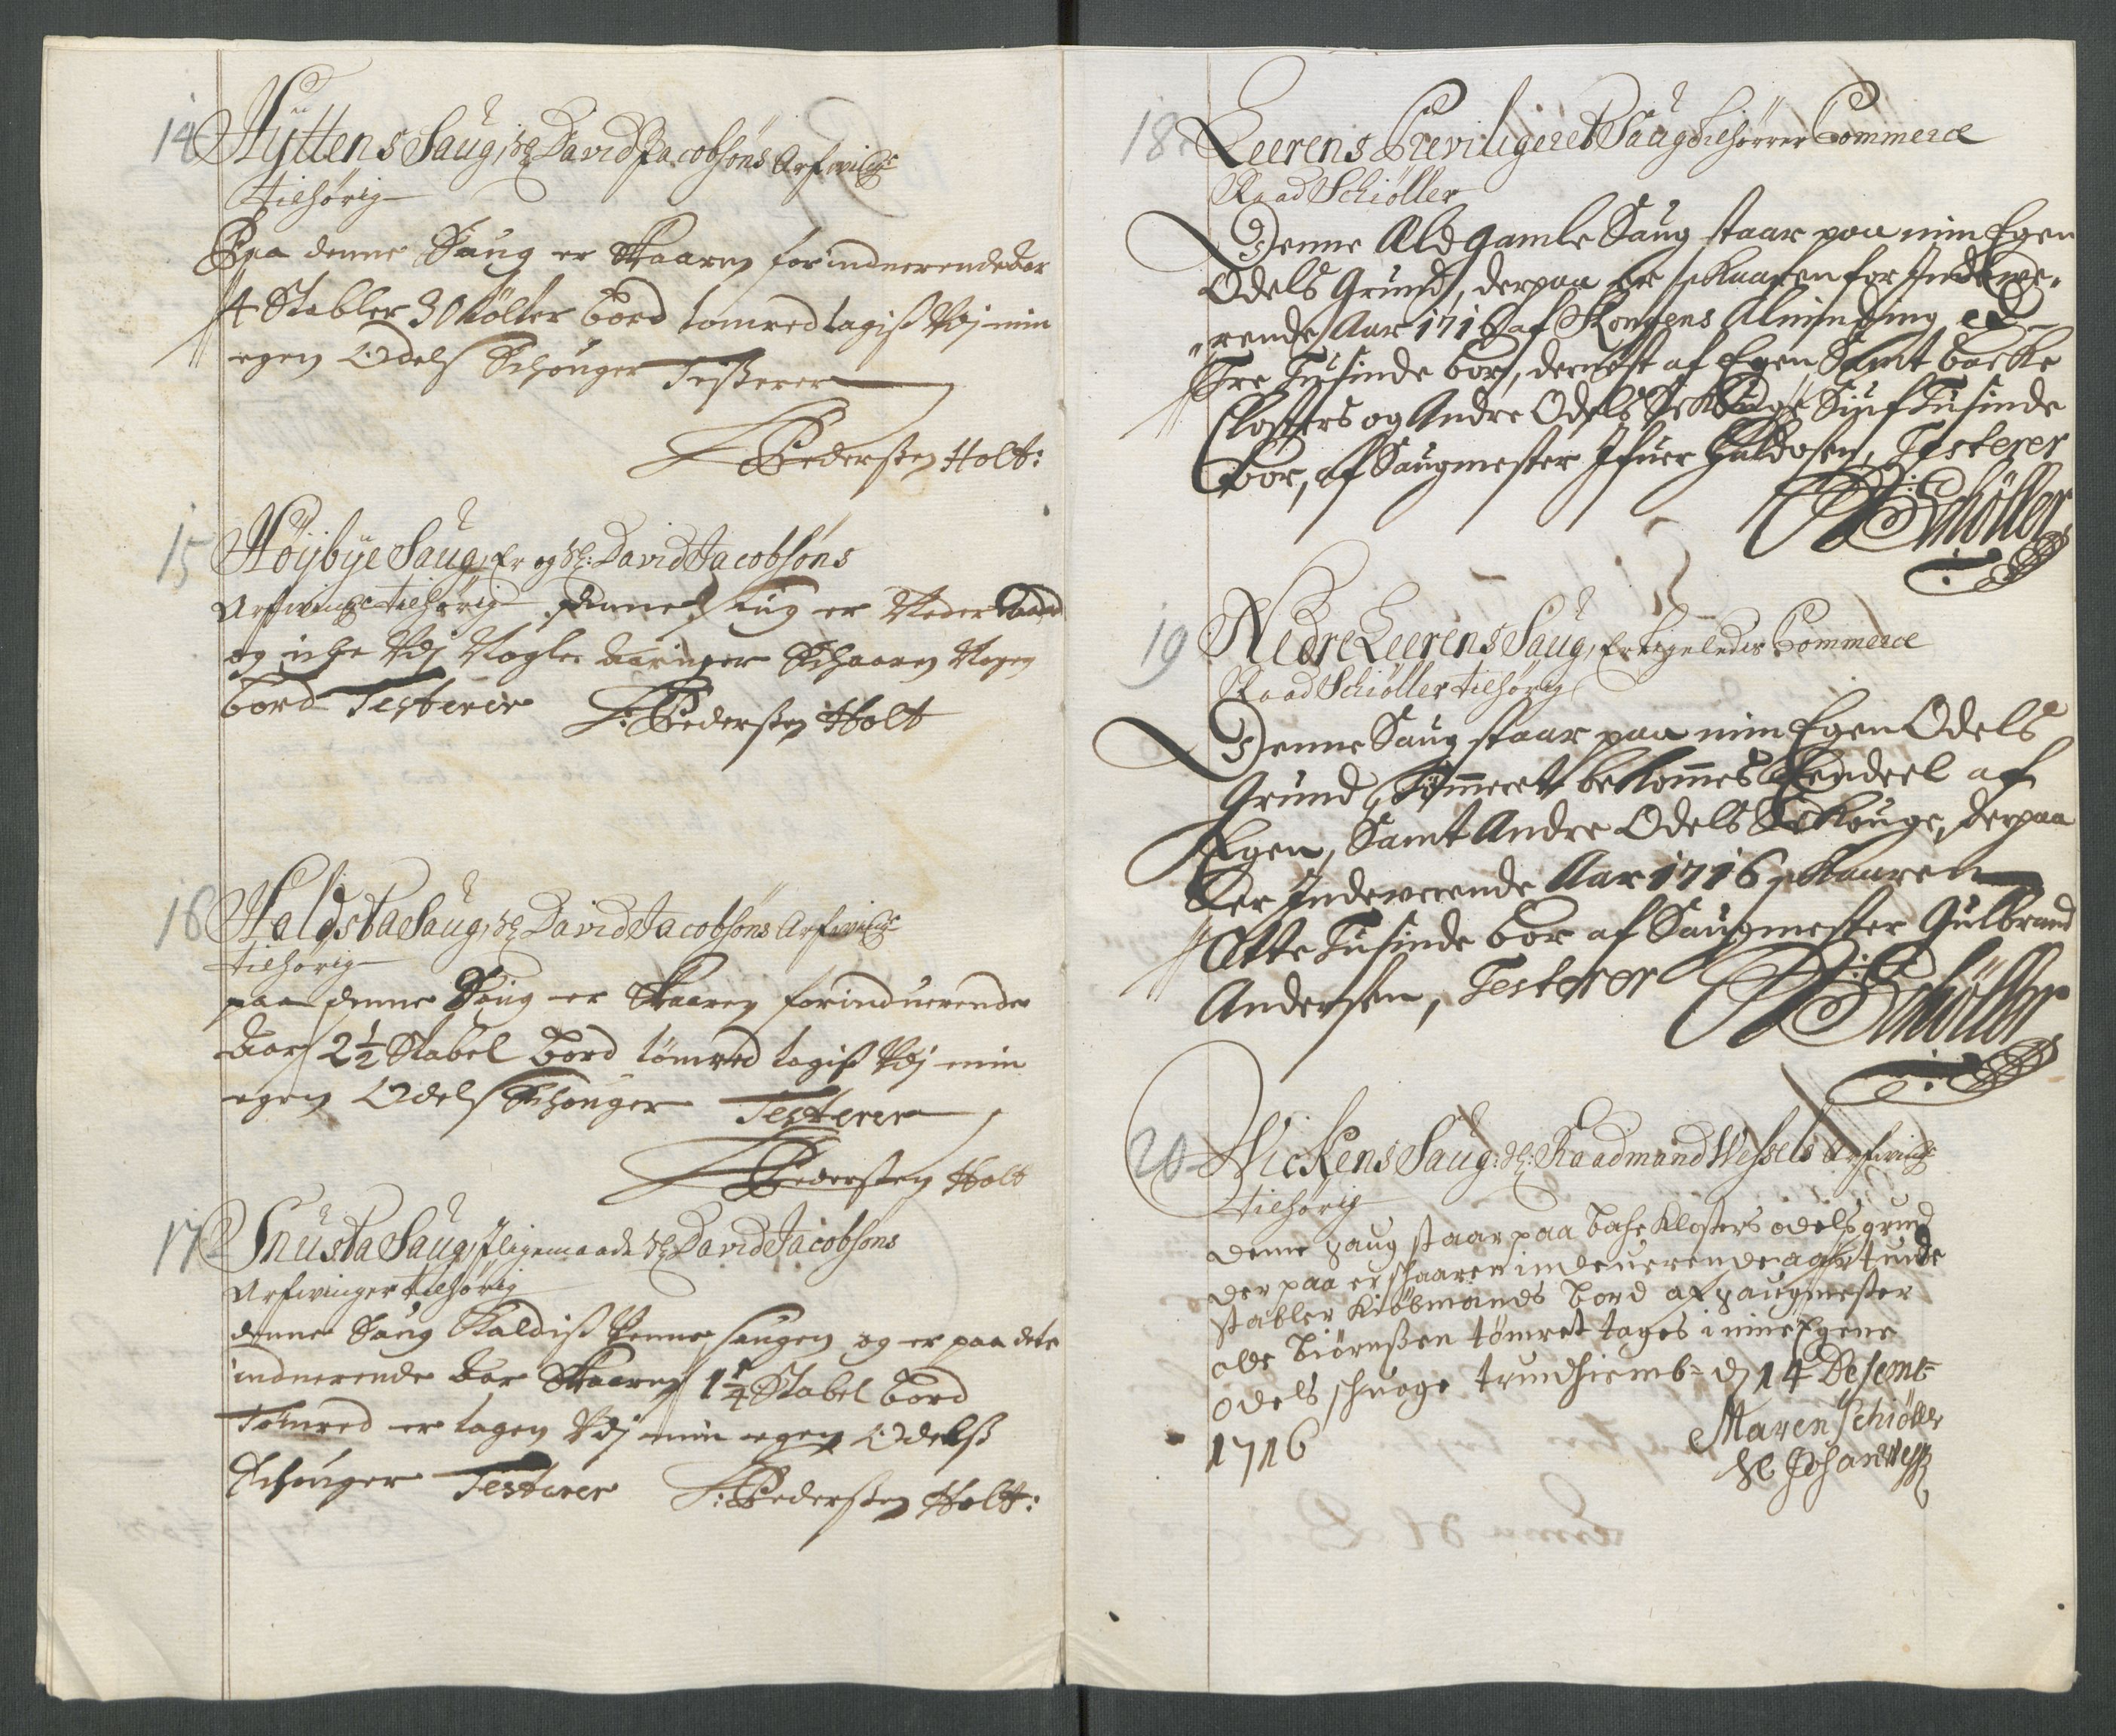 14 Hyttens Saug, Sl: David Jacobsøns Arfwing:
tilhørig
Paa denne Saug er Skaaren forinduerende Aar
4 Stabler 30 tölter bord tømred tagiß Vdj min
egen Odels Schouger Testerer
Pederßen Holt:
15 Høybye Saug, Er og Sl: David Jacobsøns
Arfwinge tilhørig denne Saug er Neder
og iche Vdj Nogle Aaringer Schaaren Nogen
bord Testerer Pederßen Holt
16 Haldsta Saug, Sl: David Jacobsøns Arfwing:
tilhørig
paa denne Saug er Skaaren forinduerende
Aar 2 1/2 Stabel bord tømred tagiß Vdj min
egen Odels Schouger Testerer
Pederßen Holt
17 Snusta Saug, Sl: David Jacobsøns
Arfwinger tilhørig
denne Saug Kaldiß saugen og er paa dete
induerende Aar Skaaren 1 1/4 Stabel bord
Tømred er tagen Vdj min egen Odelß
Schouger Testerer Pederßen Holt:
18 Leerens Previligeret Saug tilhørrer Commerce
Raad Schiøller
Denne Ald gamle Saug staar paa min Egen
Odels Grund, derpaa er schaaren for Indewe„
„rende Aar 1716 af Kongens Alminding
Tre Tusinde bor, dernest af Egen Samt backe
Closters og Andre Odels Schouge Siuf Tusinde
bor, af Saugmester Ifuer Haldosen, Testerer
Schøller
19 Nedre Leerens Saug, Er ligeledes Commerce
Raad Schiøller tilhørig
Denne Saug staar paa min Egen Odels
Grund, Tømmeret bekommes Eendeel af
Egen, Samt Andre Odels Schouge, derpaa
er Indeweerende Aar 1716 schaaren
Otte Tusinde bor af Saugmester Gulbrand
Andersen, Testerer Schøller
20 Wickens Saug: Sl: Raadmand Wessels Arfwing:
tilhørig
denne saug staar paa bache Klosters odels grund
der paa er schaaren indeuerende aar tinde
stabler Kiøbmands bord af saugmester
ole biørnßen tømret tages i mine Egene
odels schuoge trundhiemb d 14 Desemb:
1716 Maren Schiøller
Sl Johan Weßels